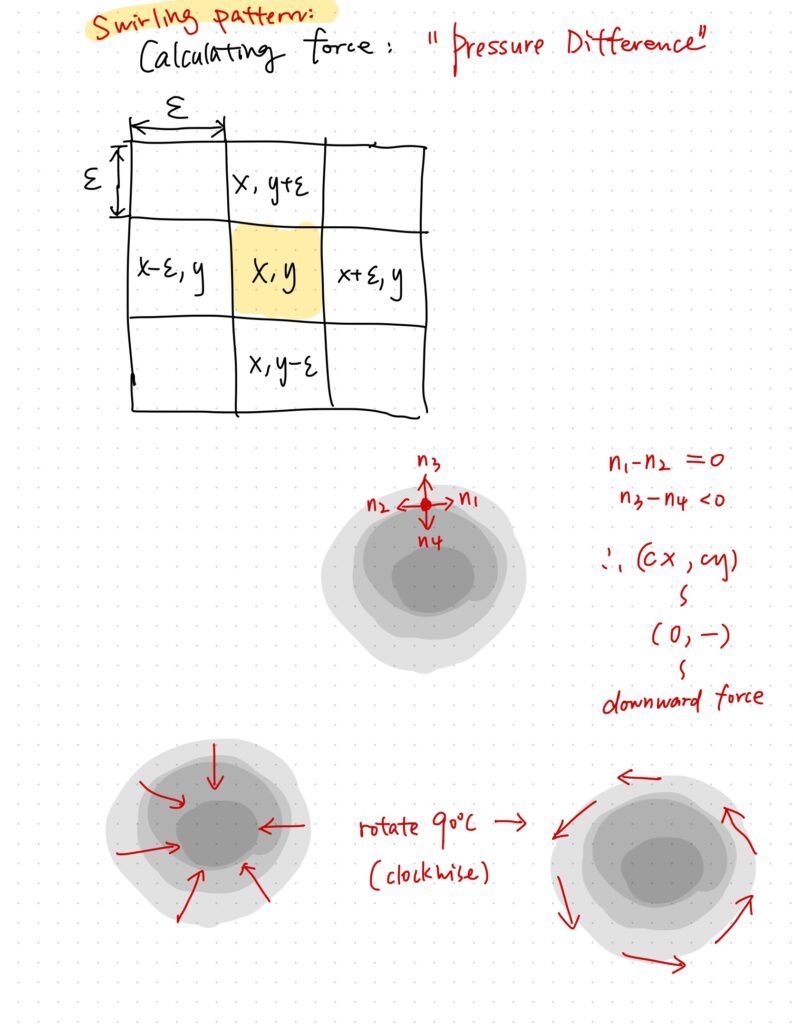 Swirling pattern:
Calculating force: "Pressure Difference"
ε
ε
x, y+ε
x-ε, y
x, y
x+ε, y
x, y-ε
n3
n2
n1
n4
n1-n2 =0
n3-n4 <0
∴ (cx, cy)
(0, -)
downward force
rotate 90°C →
(clockwise)